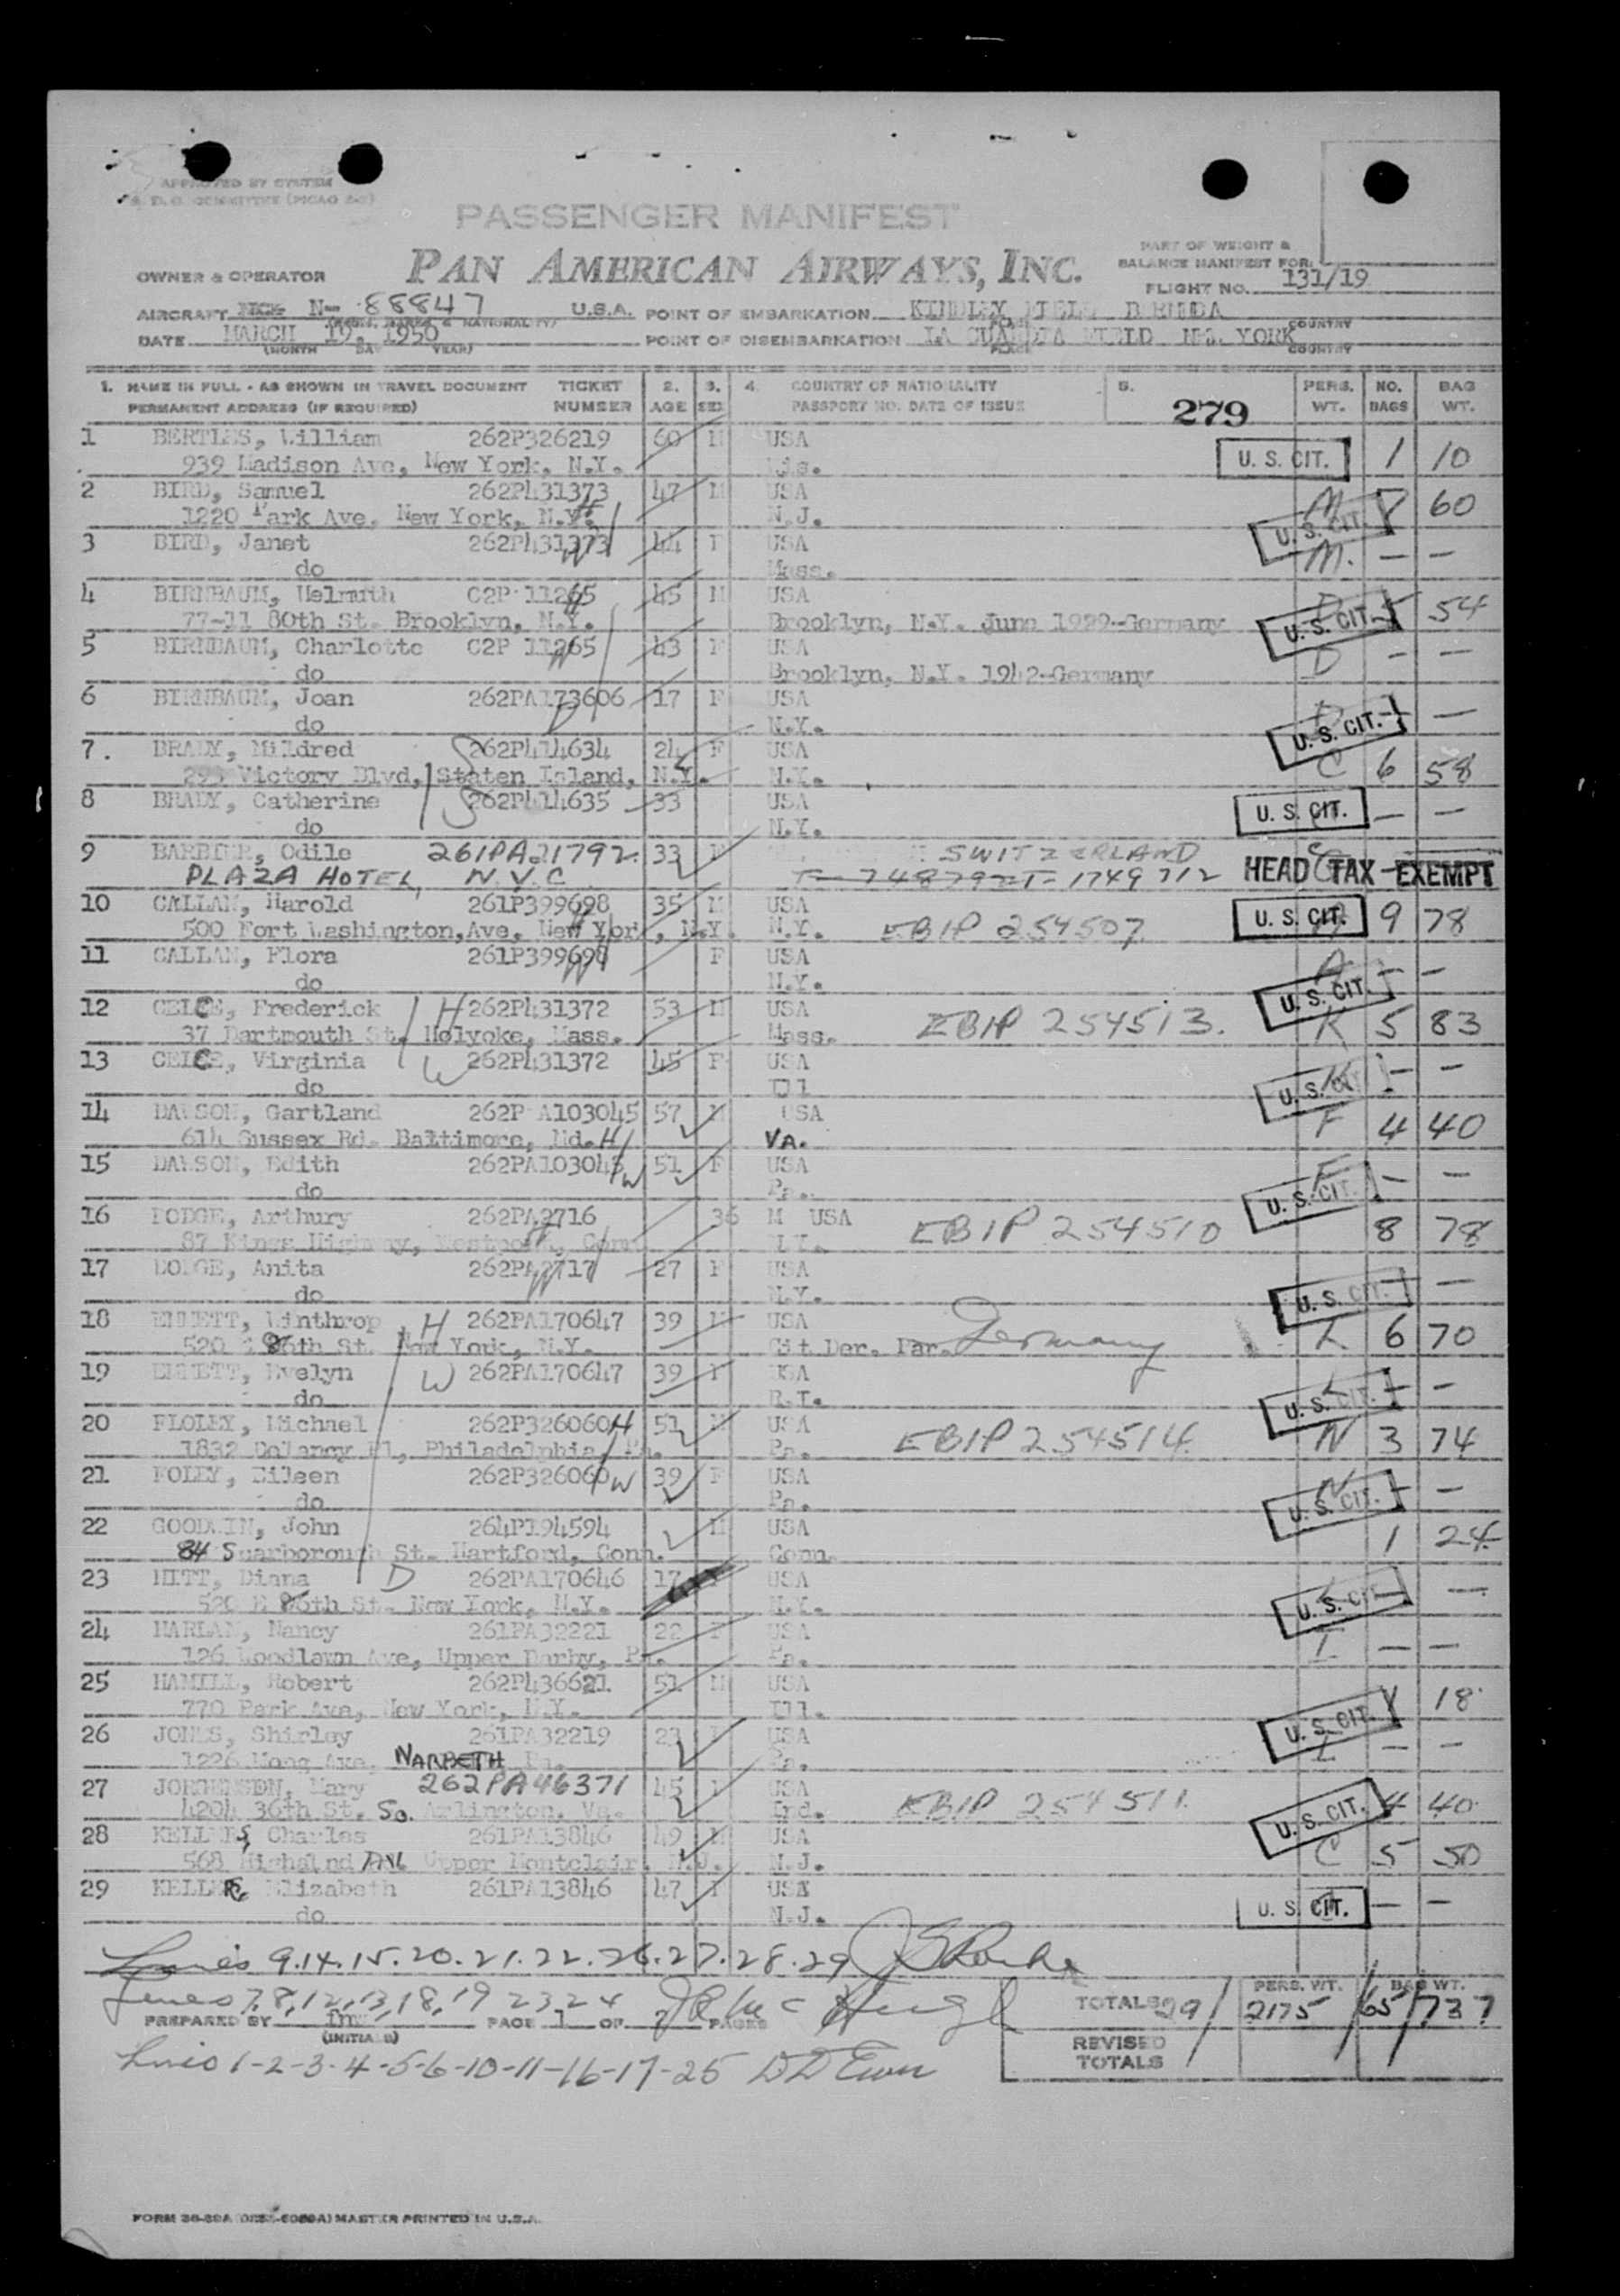 APPROVED BY SYSTEM
PASSENGER MANIFEST
PAN AMERICAN AIRWAYS, INC.
PART OF WEIGHT &
BALANCE MANIFEST FOR:
OWNER & OPERATOR
FLIGHT NO. 131/19
AIRCRAFT N- 88847 U.S.A. POINT OF EMBARKATION KINDLEY FIELD BERMUDA
DATE MARCH 19, 1950 POINT OF DISEMBARKATION LA GUARDIA FIELD NEW YORK
(MONTH DAY YEAR) PLACE COUNTRY
1. NAME IN FULL - AS SHOWN IN TRAVEL DOCUMENT TICKET 2. 3. 4. COUNTRY OF NATIONALITY 5. PERS. NO. BAG
PERMANENT ADDRESS (IF REQUIRED) NUMBER AGE SEX PASSPORT NO. DATE OF ISSUE 279 WT. BAGS WT.
1 BERTLES, William 262P326219 60 M USA
939 Madison Ave, New York, N.Y. U. S. CIT. 1 10
2 BIRD, Samuel 262P431373 47 M USA
1220 Park Ave. New York, N.Y. H N.J. M 60
3 BIRD, Janet 262P431373 W 44 F USA U. S. CIT.
do Mass. M. — —
4 BIRNBAUM, Helmuth C2P 11265 H 45 M USA
77-11 80th St. Brooklyn, N.Y. Brooklyn, N.Y. June 1929-Germany U. S. CIT. D 5 54
5 BIRNBAUM, Charlotte C2P 11265 W 43 F USA
do Brooklyn, N.Y. 1942-Germany D — —
6 BIRNBAUM, Joan 262PA173606 17 F USA
do D N.Y. U. S. CIT. —
7. BRADY, Mildred S 262P414634 24 F USA
Victory Blvd, Staten Island, N.Y. N.Y. C 6 58
8 BRADY, Catherine S 262P414635 33 USA
do N.Y. U. S. CIT. — —
9 BARBIER, Odile 261PA21792 33 F SWITZERLAND
PLAZA HOTEL, N.Y.C T- 1749712 HEAD TAX EXEMPT
10 CALLAN, Harold 261P399698 35 M USA
500 Fort Washington, Ave, New York, N.Y. N.Y. EBIP 254507 U. S. CIT. 9 78
11 CALLAN, Flora 261P399698 W F USA
do N.Y. A — —
12 CELCE, Frederick H 262P431372 53 M USA U. S. CIT.
37 Dartmouth St. Holyoke, Mass. Mass. EBIP 254513. K 5 83
13 CELCE, Virginia W 262P431372 45 F USA
do Ill U. S. CIT. K — —
14 DAWSON, Gartland 262P A103045 57 M USA
614 Sussex Rd. Baltimore, Md. H VA. F 4 40
15 DAWSON, Edith 262PA103045 W 51 F USA
do Pa. U. S. CIT. F — —
16 DODGE, Arthury 262PA2716 36 M USA
87 Kings Highway, Westport, Conn EBIP 254510 8 78
17 DODGE, Anita 262PA2717 W 27 F USA
do N.Y. U. S. CIT. —
18 EMMETT, Winthrop H 262PA170647 39 M USA
520 E 86th St. New York, N.Y. Cit Der. Par. Germany L 6 70
19 EMMETT, Evelyn W 262PA170647 39 F USA
do R.I. U. S. CIT. L — —
20 FLOLEY, Michael 262P326060 H 51 M USA
1832 Delancy Pl, Philadelphia, Pa. Pa. EBIP 254514. N 3 74
21 FOLEY, Eileen 262P326060 W 39 F USA
do Pa. U. S. CIT. N — —
22 GOODWIN, John 264P194594 M USA
84 Scarborough St. Hartford, Conn. Conn. 1 24
23 HITT, Diana D 262PA170646 17 F USA
520 E 86th St. New York, N.Y. N.Y. U. S. CIT. L — —
24 HARLAN, Nancy 261PA32221 22 F USA
126 Woodlawn Ave, Upper Darby, Pa. Pa. I — —
25 HAMILL, Robert 262P436621 51 M USA
770 Park Ave, New York, N.Y. Ill. U. S. CIT. 1 18
26 JONES, Shirley 261PA32219 23 F USA
1226 Ave, NARBETH Pa. Pa. I — —
27 JORGENSEN, Mary 262PA46371 45 F USA
4204 36th St. So. Arlington, Va. Ind. EBIP 254511. U. S. CIT. 4 40
28 KELLERS, Charles 261PA13846 49 M USA
568 Highalnd AVE Upper Montclair, N.J. N.J. C 5 50
29 KELLERS, Elizabeth 261PA13846 47 F USA
do N.J. U. S. CIT. — —
Lines 9.14.15.20.21.22.26.27.28.29
Lines 7,8,12,13,18,19 23 24
PREPARED BY PAGE 1 OF 2 PAGES TOTALS 29 PERS. WT. 2175 65 BAG WT. 737
(INITIALS) REVISED TOTALS
Lines 1-2-3-4-5-6-10-11-16-17-25
MASTER PRINTED IN U.S.A.